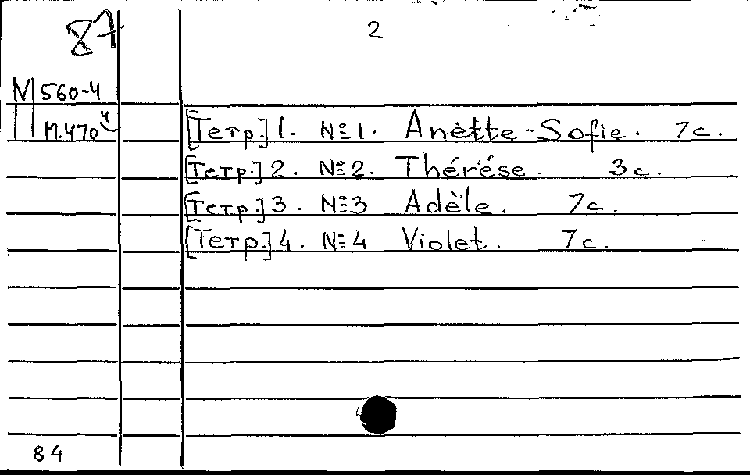 87
2
M 560-4
M.470
[Тетр.] 1. №1. Anètte-Sofie. 7с.
[Тетр.] 2. №2. Thérése. 3с.
[Тетр.] 3. №3 Adèle. 7с.
[Тетр.] 4. №4 Violet. 7с.
84